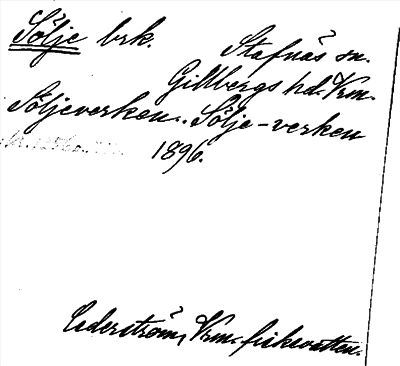 Sölje brk.
Stafnäs sn.
Gillbergs hd. Vrm.
Söljeverken. Sölje-verken
1896.
Cederström, Vrm. fiskevatten.